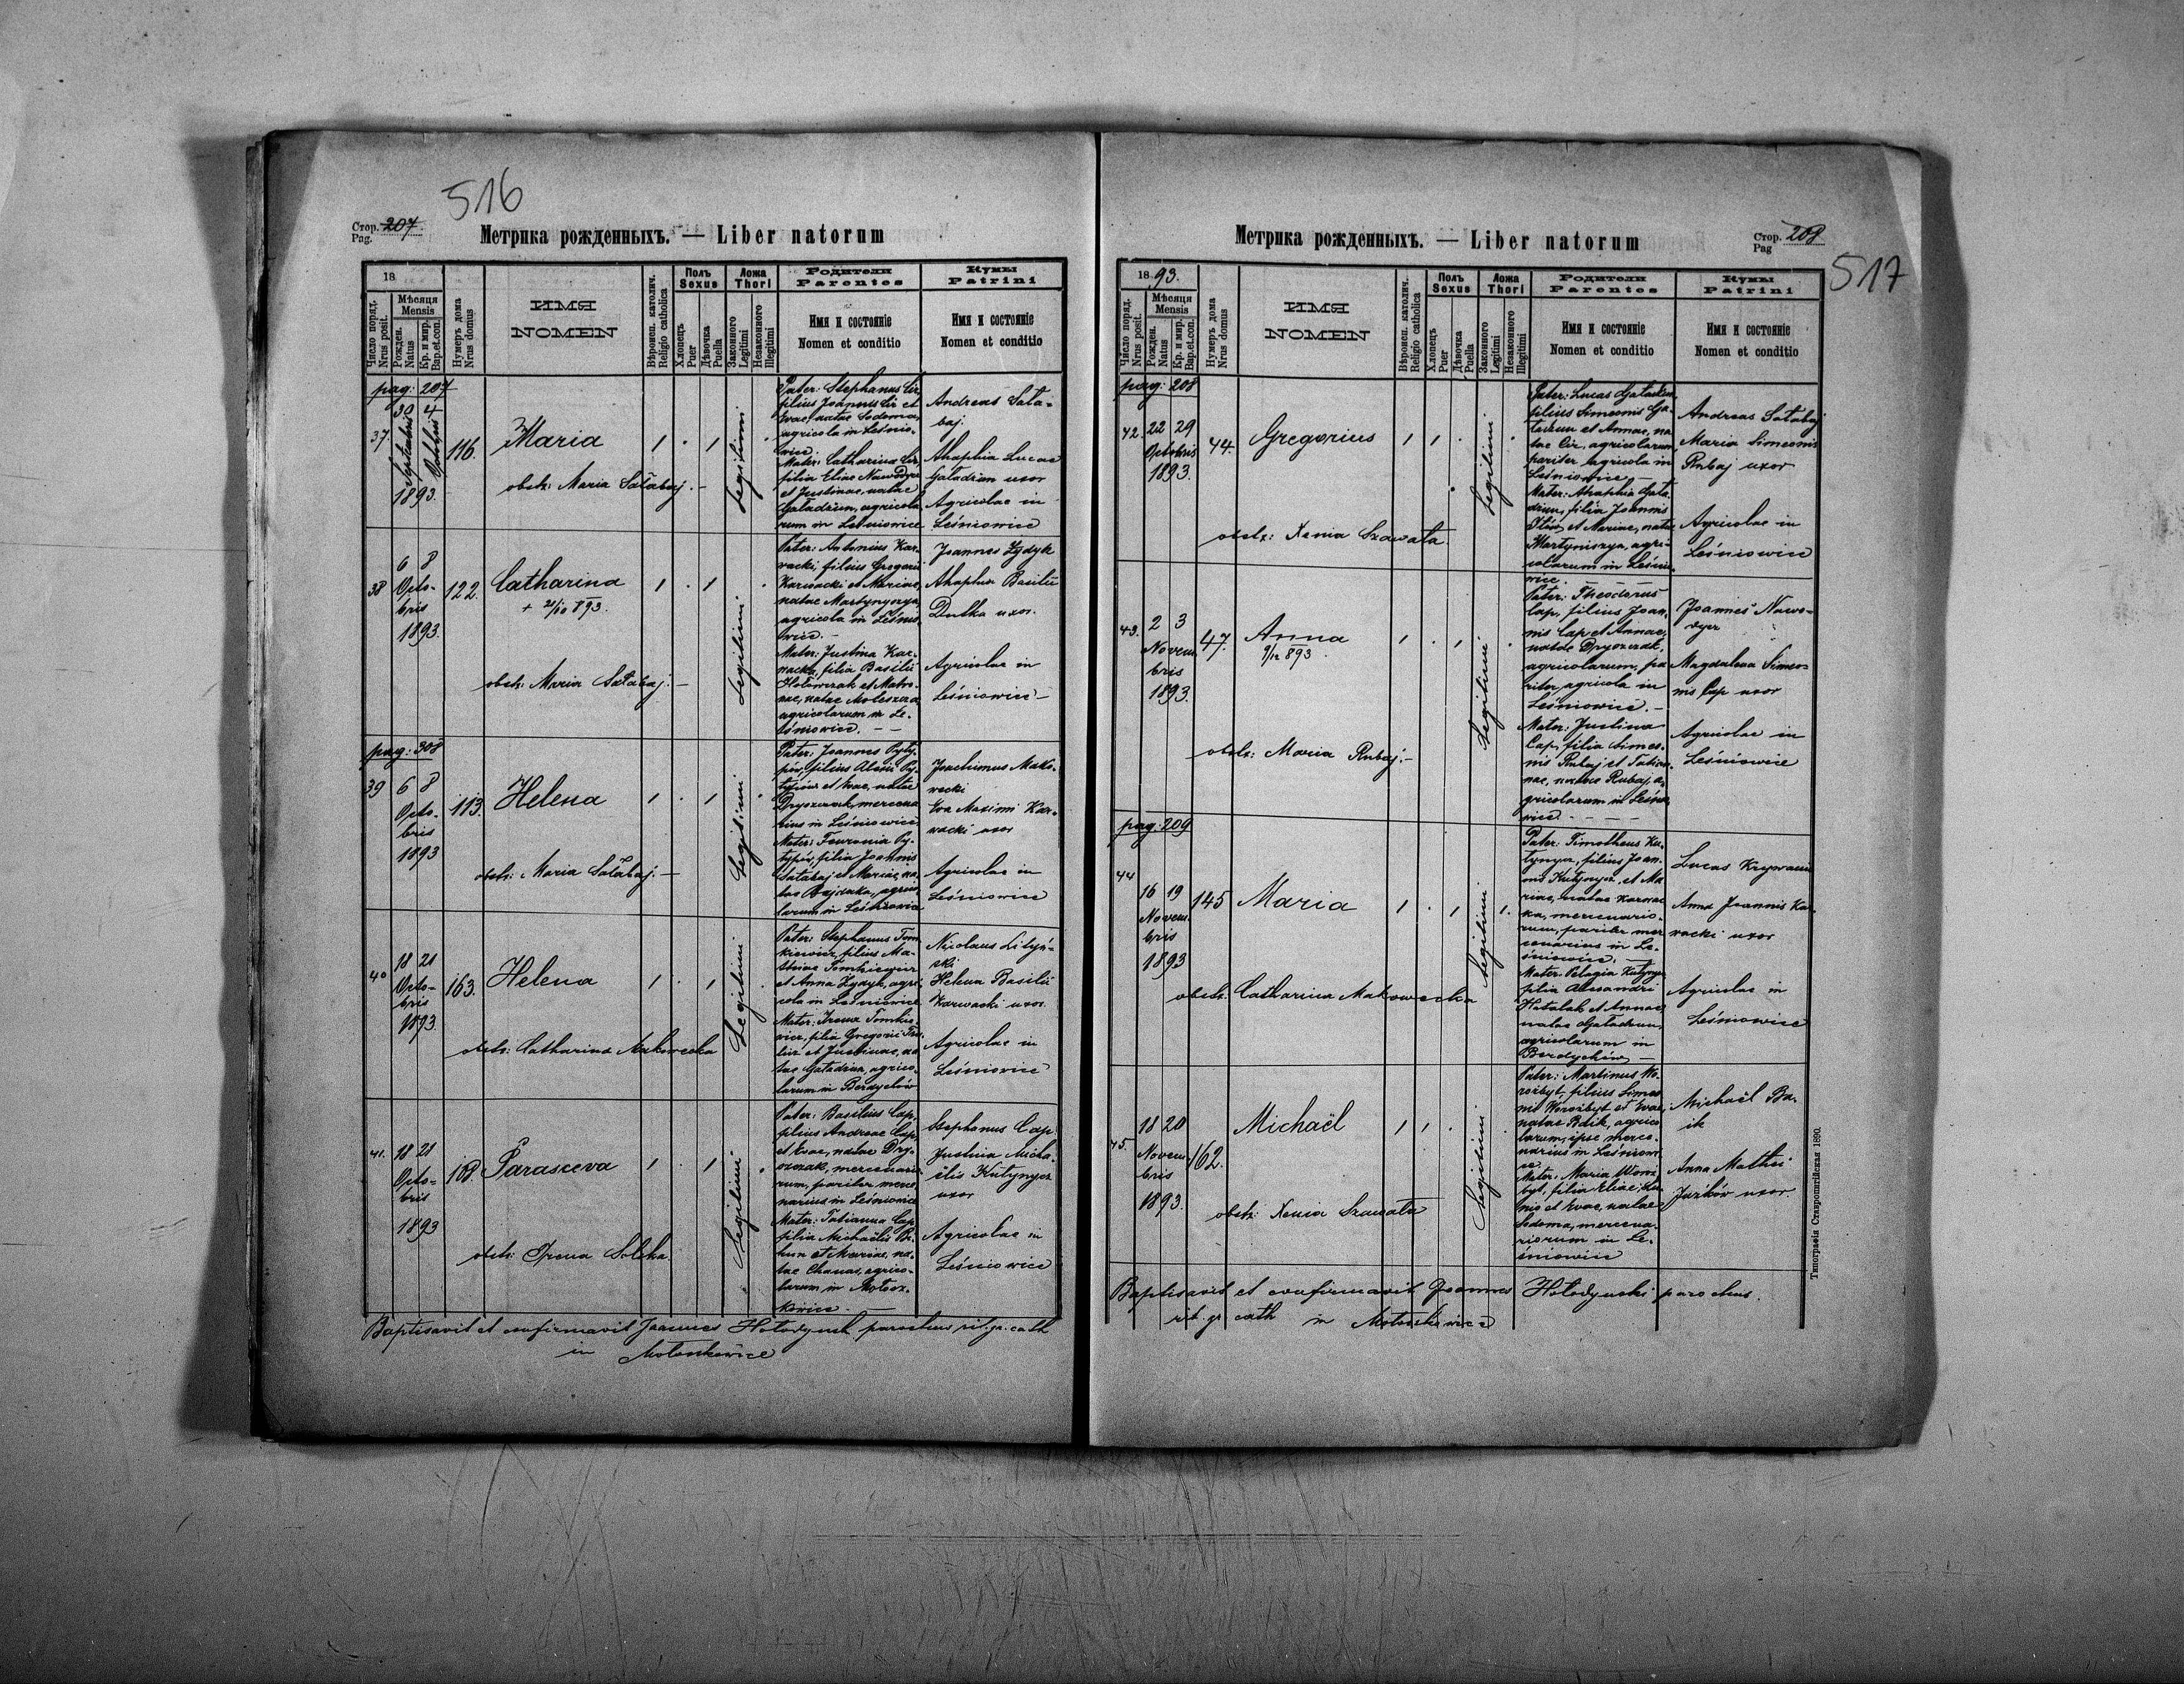 516
Стор. 207.
Pag.
Метрика рожденныхъ. — Liber natorum
18
Число поряд.
Nrus posit.
Мѣсяця
Mensis
Рожден.
Natus
Кр. и мир.
Bap. et con.
Нумеръ дома
Nrus domus
ИМЯ
NOMEN
Вѣроисп. католич.
Religio catholica
Полъ
Sexus
Хлопецъ
Puer
Дѣвочка
Puella
Ложа
Thori
Законного
Legitimi
Незаконного
Illegitimi
Родители
Parentes
Имя и состояніе
Nomen et conditio
Кумы
Patrini
Имя и состояніе
Nomen et conditio
pag: 207
37.
30 4
Septembris Octobris
1893.
116.
Maria
obstr: Maria Sałabaj.
Legitimi
Pater: Stephanus Cir,
filius Joannis Cir et
Evae, natae Sodoma,
agricola in Leśnio-
wice.
Mater: Catharina Cir,
filia Eliae
et Justinae, natae
Gaładzun, agricola-
rum in Leśniowice
Andreas Sała-
baj.
Ahaphia Lucae
Gaładzun uxor
Agricolae in
Leśniowice
38
6 8
Octo-
bris
1893.
122.
Catharina
+ 21/10 893.
obstr: Maria Sałabaj. —
Legitimi
Pater: Antonius Kar-
wacki, filius Gregorii
Karwacki et Mariae,
natae Martynyszyn,
agricola in Leśnio-
wice. —
Mater: Justina Kar-
wacka, filia Basilii
Hołowczak et Matro-
nae, natae
agricolarum in Le-
śniowice. — —
Joannes Zydyk
Ahaphia Basilii
Dutka uxor.
Agricolae in
Leśniowice —
pag: 308
39
6 8
Octo-
bris
1893
113.
Helena
obstr: Maria Sałabaj. —
Legitimi
Pater: Joannes Pyty-
pür, filius
et Evae, natae
Dryszczak, mercena-
rius in Leśniowice
Mater: Fewronia Py-
typür, filia Joannis
Sałabaj et Mariae, na-
tae Bajduka, agrico-
larum in Leśniowice
Joachimus Mako-
wecki
Eva Maximi Kar-
wacki uxor
Agricolae in
Leśniowice
40
18 21
Octo-
bris
1893.
163.
Helena
obstr: Catharina Makowecka
Legitimi
Pater: Stephanus Tom-
kiewicz, filius Ma-
thiae Tomkiewicz
et Anna Zydyk, agri-
cola in Leśniowice
Mater: Irena Tomkie-
wicz, filia Gregorii
et Justinae, na-
tae Gaładzun, agrico-
larum in Berdychów
Nicolaus Lityń-
ski
Helena Basilii
Karwacki uxor.
Agricolae in
Leśniowice
41.
18 21
Octo-
bris
1893
168.
Parasceva
obstr: Irena Solska
Legitimi
Pater: Basilius Cap,
filius Andreae Cap,
et Evae, natae Dry-
szczak, mercenario-
rum, pariter merce-
narius in Leśniowice
Mater: Tatianna Cap
filia Michaëlis
et Mariae, na-
tae Chanas, agrico-
larum in Mołosz-
kowice. —
Stephanus Cap
Justina Micha-
ëlis Kutynycz
uxor
Agricolae in
Leśniowice
Baptisavit et confirmavit Joannes Hołodynski parochus rit. gr. cath
in Mołoszkowice
Метрика рожденныхъ. — Liber natorum
Стор. 208
Pag
517
18 93.
Число поряд.
Nrus posit.
Мѣсяця
Mensis
Рожден.
Natus
Кр. и мир.
Bap. et con.
Нумеръ дома
Nrus domus
ИМЯ
NOMEN
Вѣроисп. католич.
Religio catholica
Полъ
Sexus
Хлопецъ
Puer
Дѣвочка
Puella
Ложа
Thori
Законного
Legitimi
Незаконного
Illegitimi
Родители
Parentes
Имя и состояніе
Nomen et conditio
Кумы
Patrini
Имя и состояніе
Nomen et conditio
pag: 208
42.
22 29
Octobris
1893.
44.
Gregorius
obstr: Xenia Szawała.
Legitimi
Pater: Lucas Gaładzun
filius Simeonis Ga-
ładzun et Annae, na-
tae Cir, agricolarum,
pariter agricola in
Leśniowice —
Mater: Ahaphia Gała-
dzun, filia Joannis
et Mariae, natae
Martyniszyn, agri-
colarum in Leśnio-
wice.
Andreas Sałabaj
Maria Simeonis
Rubaj uxor
Agricolae in
Leśniowice
43.
2 3
Novem-
bris
1893.
47.
Anna
9/12 893.
obstr: Maria Rubaj. —
Legitimi
Pater: Theodorus
Cap, filius Joan-
nis Cap et Annae,
natae Dryszczak,
agricolarum, pa-
riter agricola in
Leśniowice. —
Mater: Justina
Cap, filia Simeo-
nis Rubaj et Tatian-
nae, natae Rubaj, a-
gricolarum in Leśnio-
wice. - - - -
Joannes Nawo-
dyr
Magdalena Simeo-
nis Cap uxor
Agricolae in
Leśniowice
pag: 209
44
16 19
Novem-
bris
1893
145
Maria
obstr: Catharina Makowecka
Legitimi
Pater: Timotheus Ku-
tynycz, filius Joan-
nis Kutynycz, et Ma-
riae, natae Karwac-
ka, mercenario-
rum, pariter mer-
cenarius in Le-
śniowice. —
Mater: Pelagia Kutynycz
filia Alexandri
Hatalak et Annae,
natae Gaładzun,
agricolarum in
Berdychów —
Lucas
Anna Joannis Kar-
wacki uxor
Agricolae in
Leśniowice
45.
18 20
Novem-
bris
1893.
162.
Michaël
obstr: Xenia Szawała
Legitimi
Pater: Martinus Wo-
rożbyt, filius Simeo-
nis Worożbyt et Evae,
natae Bdik, agrico-
larum, ipse merce-
narius in Leśniowi-
ce.
Mater: Maria Woroż-
byt, filia Eliae
et Evae, natae
Sodoma, mercena-
riorum in Le-
śniowice
Michaël Ba-
ik
Anna Mathei
Jurków uxor.
Baptisavit et confirmavit Joannes Hołodynski parochus.
rit. gr cath in Mołoszkowice
Типографія Ставропигійская 1890.